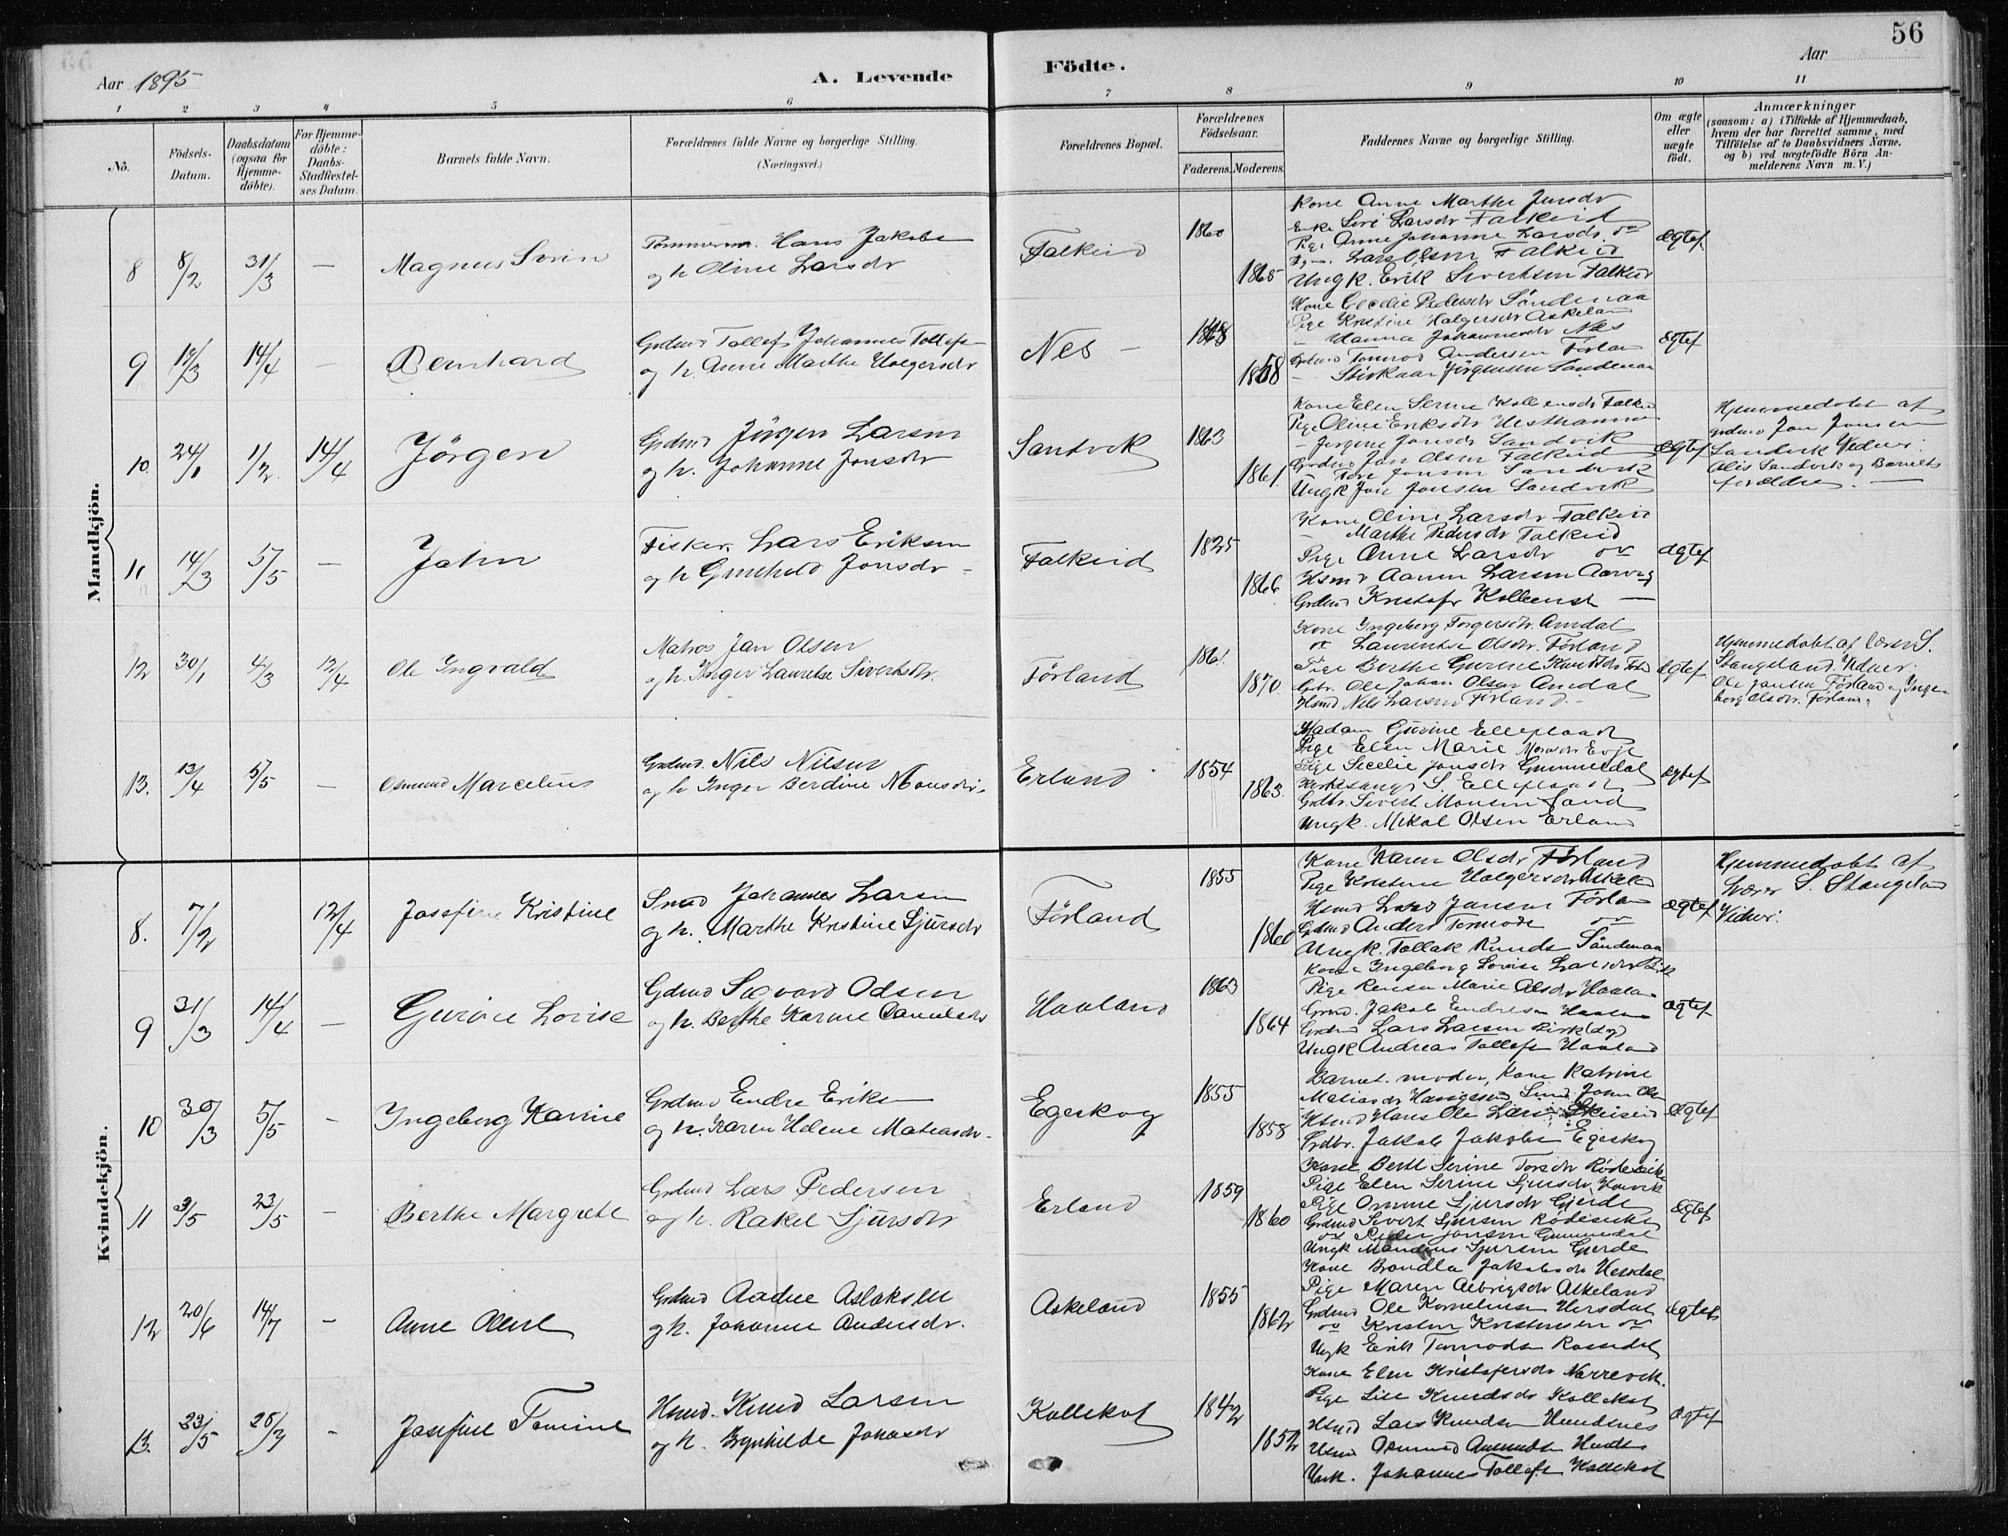 56
Aar 1895
A. Levende
Födte.
Aar
1 2 3 4 5 6 7 8 9 10 11
No.
Födsels-
Datum.
Daabsdatum
(ogsaa for
Hjemme-
döbte).
For Hjemme-
döbte:
Daabs-
Stadfæstel-
ses Datum.
Barnets fulde Navn.
Forældrenes fulde Navne og borgerlige Stilling.
(Næringsvei.)
Forældrenes Bopæl.
Forældrenes
Födselsaar.
Faderens.
Moderens.
Faddernes Navne og borgerlig Stilling.
Om ægte
eller
uægte
födt.
Anmærkninger
(saasom: a) i Tilfælde af Hjemmedaab,
hvem der har forrettet samme, med
Tilföielse af to Daabsvidners Navne,
og b) ved uægtefödte Börn An-
melderens Navn m. V.)
Mandkjön.
8 8/2 31/3 —
Magnus Sivin
Tømmerm. Hans Jakobs
og h. Oline Larsdr
Falkeid
1860
1865
Kone Anne Marthe Jensdr
Enke Siri Larsdr Falkeid
Pige Anne Johanne Larsdr
Lars Olsen Falkeid
Ungk. Erik Sivertsen Falkeid
Ægtef.
9 14/4 —
Bernhard
Grdmd Tollef Johannes Tollefs
og h. Anne Marthe Holgersdr
Nes —
Kone Cecelie Pedersdr Söndenaa
Pige Kristine Holgersdr Askeland
" Hanna Johannesdr Næs
Grdmd Tormod Andersen Förlan
" Störkaar Jörgensen Sandenaa
Ægtef
10. 24/1 1/2. 14/4
Jörgen
Grdmd Jörgen Larsen
og h. Johanne Jonsdr
Sandvik
1863
1861.
Kone Elen Serine Falkeid
Pige Oline Eriksdr Vesthamm
" Jorgine Jonsdr Sandvik
Grdmd Jan Olsen Falkeid
" Tore Jonsen Sandvik
Ungk Jon Jonsen Sandvik
Ægtef
Hjemmedøbt af
Grdmd Jon Jonsen
Sandvik Vidner:
Olis Sandvik og Barnets
forældre. —
11 14/3 5/5 —
John
Fisker. Lars Eriksen
og h. Gunhild Jonsdr —
Falkeid
1825
1866
Kone Oline Larsdr Falkeid
" Marthe Pedersdr Falkeid
Pige Anne Larsdr
Hsmd Aanen Larsen
Grdmd Kristofr —
Ægtef
12 30/1 4/3 12/4
Ole Ingvald
Matros Jan Olsen
og h. Inger Lauretse Sivertsdr.
Förland
1861.
1870.
Kone Ingeborg Torgersdr. Amdal
Laurentse Olsdr. Förland
Pige Berthe Gurine Knudsdr
Grbr. Ole Johan Olsen Amdal
Hsmd Nils Larsen Förland. —
Ægtef
Hjemmedøbt af Lærer S.
Stangeland. Vidner:
Ole Jansen Förland og Inge-
borg Olsdr. Förland.
13. 13/4 5/5 —
Osmund Marcelius
Grdmd. Nils Nilsen
og h Inger Berdine Monsdr.
Erland
1854
1863.
Madam Gurine Ellefladt
Pige Elen Marie Monsdr Evje
Pige Sicelie Jonsdr Gummedal
Kirkesangr S. Ellefladt
Grdbr. Sivert Monsen Sand
Ungk. Mikal Olsen Erland
Ægtef
Kvindekjön.
8. 7/2 12/4
Josefine Kristine
Johannes Larsen
og h. Marthe Kristine Sjursdr
Förland
1855
1860
Kone Karen Olsdr Förland
Pige Kristine Holgersdr Askela
Hsmd Lars Jansen Förlan
Grdmd Anders Tormods
Ungk. Tollak Knuds Söndenaa
Ægtef
Hjemmedøbt af
Lærer S. Stangeland
Vidner:
9 31/3 14/4 —
Gurine Lovise
Grdmd Sævard Odsen
og h. Berthe Karine Danielsdr
Haaland
1863
1864
Kone Ingeborg Lovise Larsdr Birk
Pige Rensea Marie Olsdr Haalan
Grmd. Jakob Endresen Haaland
Grdmd Lars Larsen Birk
Ungk Andreas Tollefs Haaland
Ægtef
10 30/3 5/5 —
Ingeborg Karine
Grdmd Endre Eriksen
og h. Karen Helene Matiasdr.
Egeskog
1855
1858
Barnet. moder, Kone Katrine
Matiasdr John Ols
Hsmd Hans Ole Lars
Grdbr. Jakob Jakobs Egeskog
Ægtef
11 3/5 23/5 —
Berthe Margrete
Grdmd Lars Pedersen
og h. Rakel Sjursdr
Erland
1859
1860
Kone Berthe Serine Torsdr Rödesike
Pige Elen Serine Sjursdr
Pige Omme Sjursdr Gjerde
Grdmd Sivert Sjursen Rödesike
Peder Jonsen Gummedal
Ungk Mandius Sjursen Gjerde
Ægtef
12 20/6 14/7 —
Anne
Grdmd Aadne Aslaksen
og h. Johanne Andersdr.
Askeland
1855
1862
Kone Brandla Jakobsdr Hersdal
Pige Maren Albrigsdr Askeland
Grdmd Ole Kornelius Hersdal
Kristen Kristensen
Ungk Erik Tormods
Ægtef
13. 23/5 28/7 —
Josefine Tomine
Hsmd. Knud Larsen
og h. Brynhilde Johansdr
Kollekot
1842
1852
Kone Elen Kristofersdr Narrevik.
Pige Lise Knudsdr Kollekot
Hsmd Lars Knudsen Hundsnes
Hsmd Osmund
Ungk. Johannes Tollefs Kollekot
Ægtef